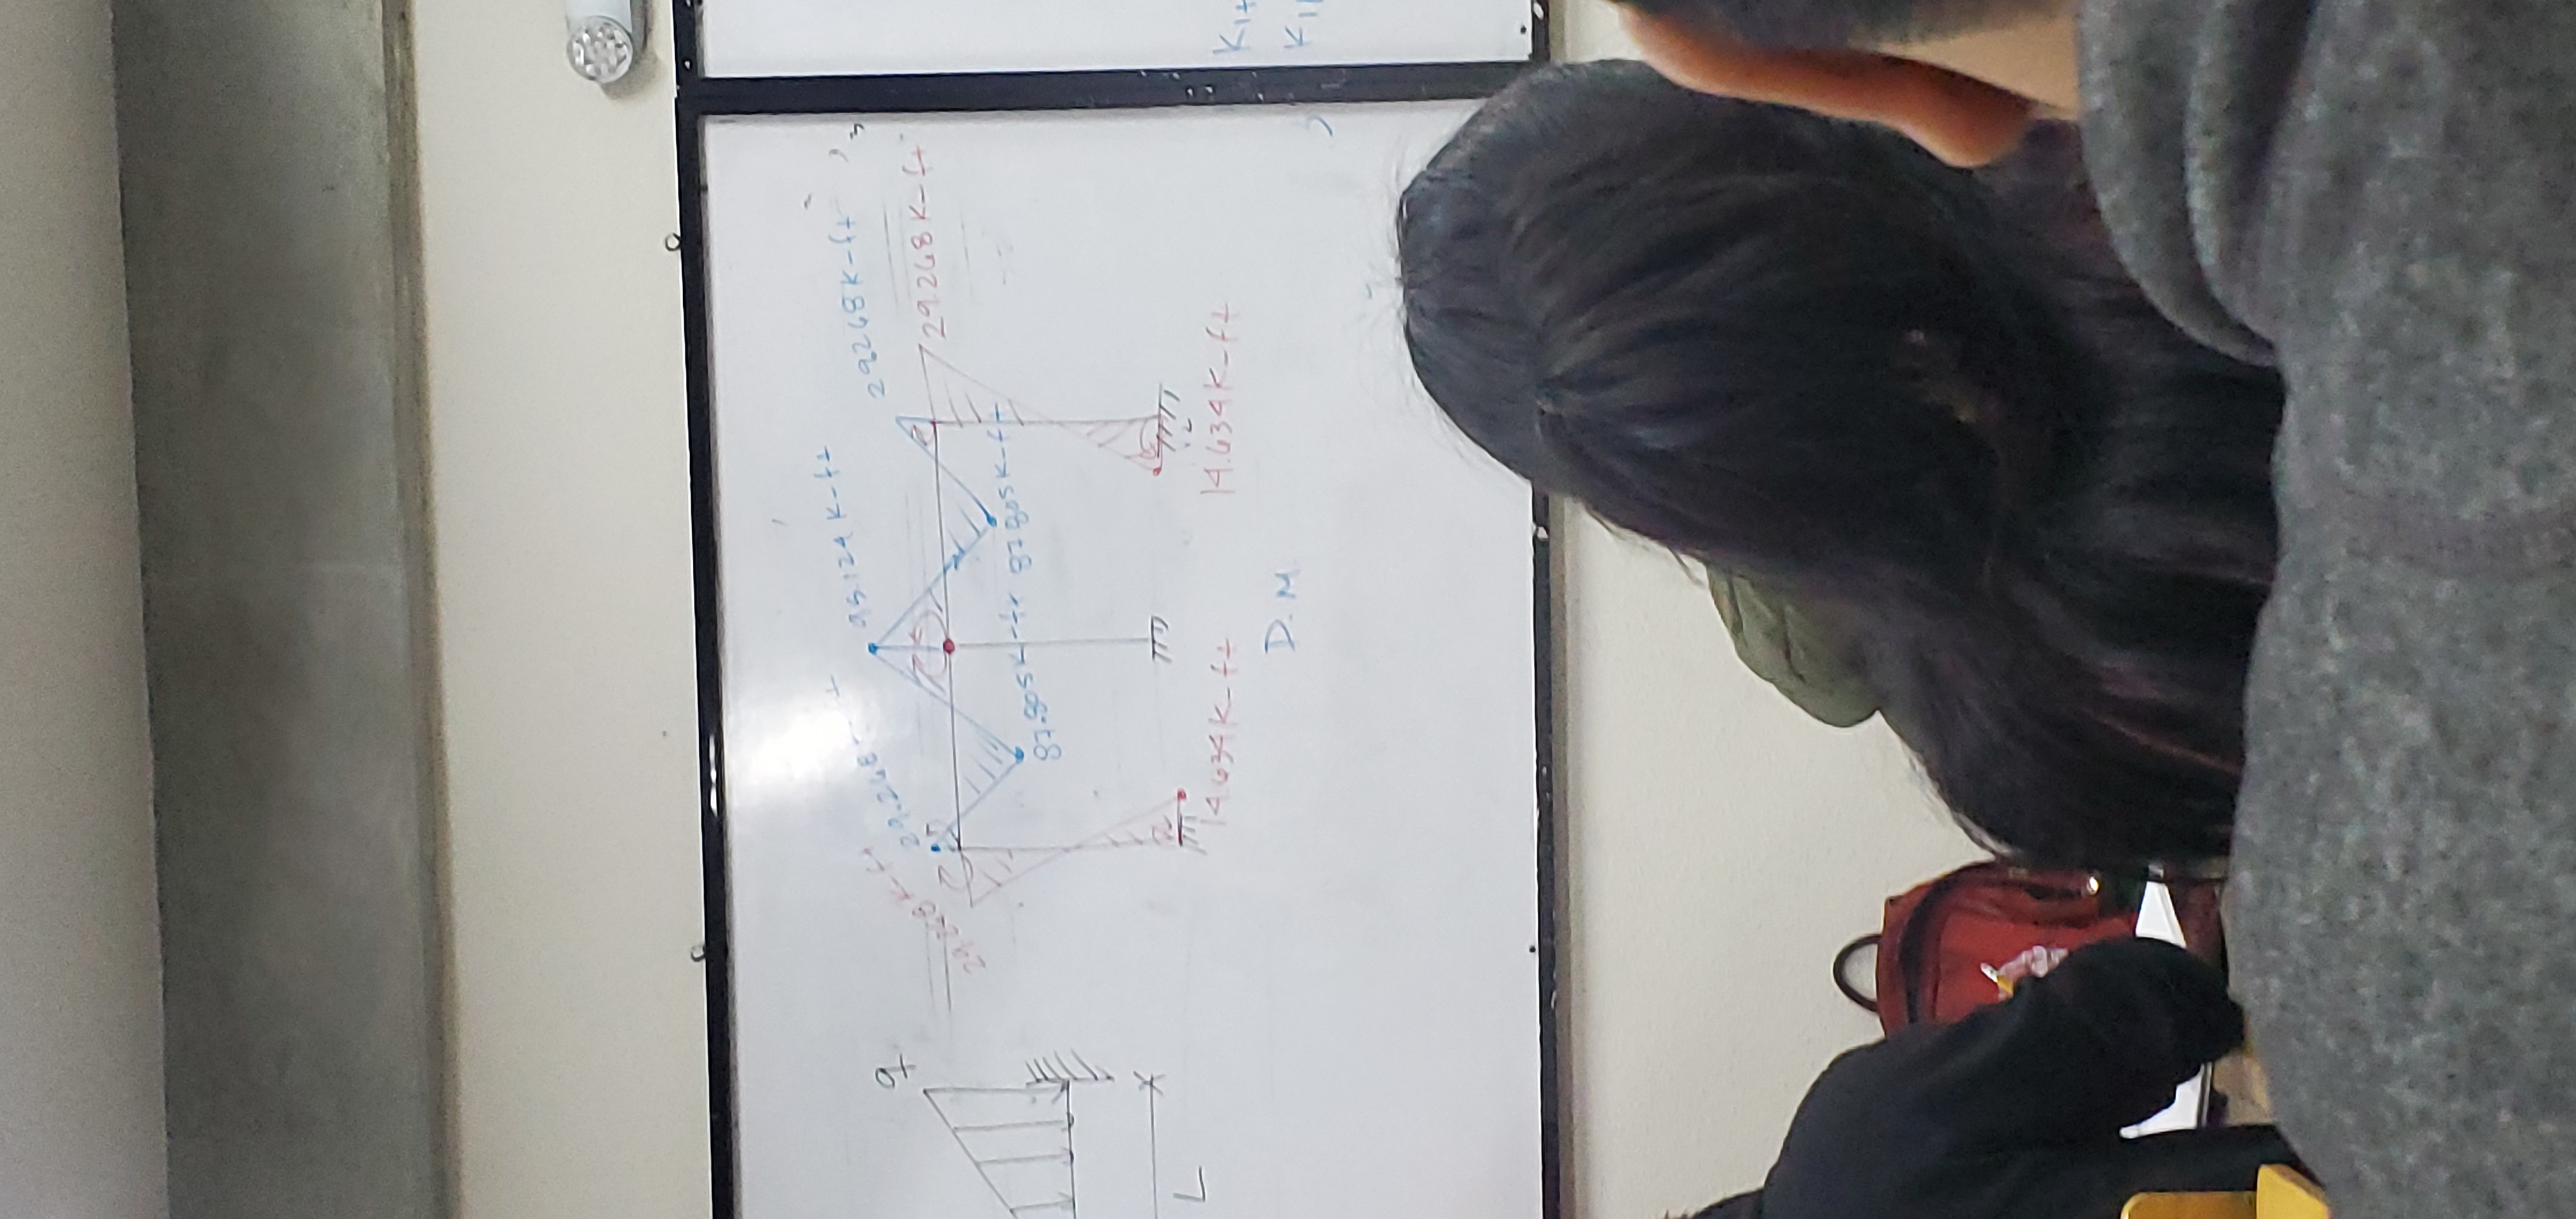 q
L
29.268 K-ft
29.268
95.124 K-ft
29.268 K-ft
29.268 K-ft
87.805 K-ft
87.805 K-ft
14.634 K-ft
14.634 K-ft
D.M.